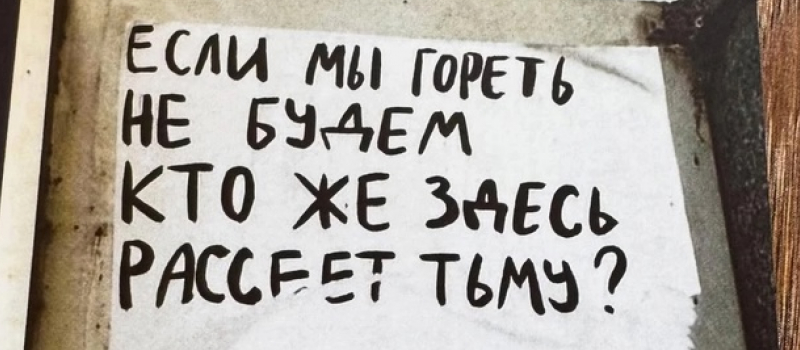 ЕСЛИ МЫ ГОРЕТЬ
НЕ БУДЕМ
КТО ЖЕ ЗДЕСЬ
РАССЕЕТ ТЬМУ?